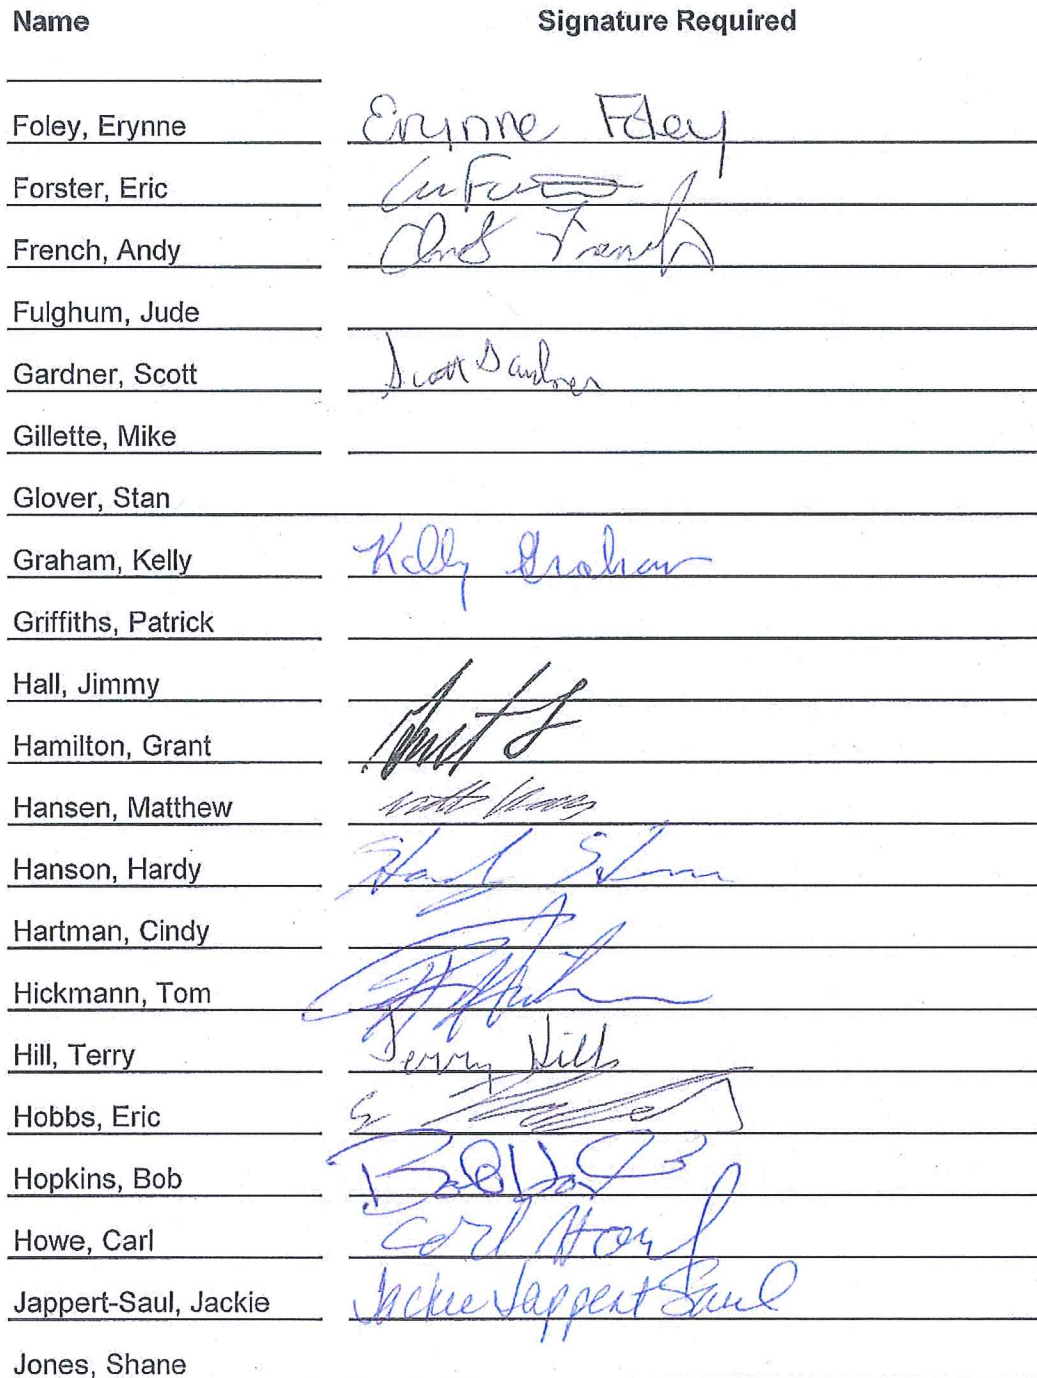 Name Signature Required
Foley, Erynne Erynne Foley
Forster, Eric
French, Andy French
Fulghum, Jude
Gardner, Scott Scott Gardner
Gillette, Mike
Glover, Stan
Graham, Kelly Kelly Graham
Griffiths, Patrick
Hall, Jimmy
Hamilton, Grant
Hansen, Matthew
Hanson, Hardy Hardy
Hartman, Cindy
Hickmann, Tom
Hill, Terry Terry Hill
Hobbs, Eric
Hopkins, Bob Bob
Howe, Carl Carl Howe
Jappert-Saul, Jackie Jackie Jappert Saul
Jones, Shane